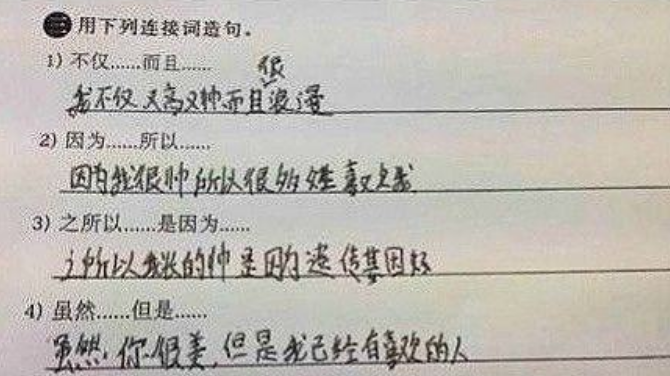 三 用下列连接词造句。
1) 不仅……而且……
很
我不仅又高又帅而且浪漫
2) 因为……所以……
因为我很帅所以很多娃喜欢我
3) 之所以……是因为……
之所以我长的帅是因为遗传基因好
4) 虽然……但是……
虽然,你很美,但是我已经有喜欢的人